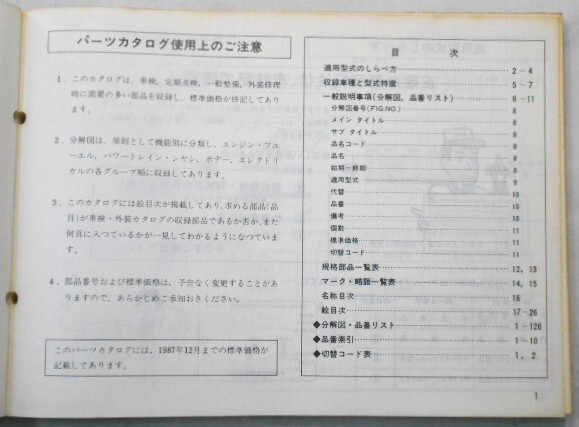 パーツカタログ使用上のご注意
1. このカタログは、車検、定期点検、一般整備、外装修理
時に需要の多い部品を収録し、標準価格が併記してあり
ます。
2. 分解図は、原則として機能別に分類し、エンジン・フユ
ーエル、パワートレイン・シヤシ、ボデー、エレクトリ
カルの各グループ順に収録してあります。
3. このカタログには絵目次が掲載してあり、求める部品(品
目)が車検・外装カタログの収録部品であるか否か、また
何頁に入つているかが一見してわかるようになつていま
す。
4. 部品番号および標準価格は、予告なく変更することがあ
りますので、あらかじめご承知おきください。
このパーツカタログには、1987年12月までの標準価格が
記載してあります。
目 次
適用型式のしらべ方 2~4
収録車種と型式特徴 5~7
一般説明事項(分解図、品番リスト) 8~11
分解図番号(FIG.NO.) 8
メイン タイトル 8
サブ タイトル 8
品名コード 8
品名 8
始期―終期 8
適用型式 9
代替 10
品番 10
備考 10
個数 11
標準価格 11
切替コード 11
規格部品一覧表 12, 13
マーク・略語一覧表 14, 15
名称目次 16
絵目次 17~26
◆分解図・品番リスト 1~126
◆品番索引 1~10
◆切替コード表 1, 2
1